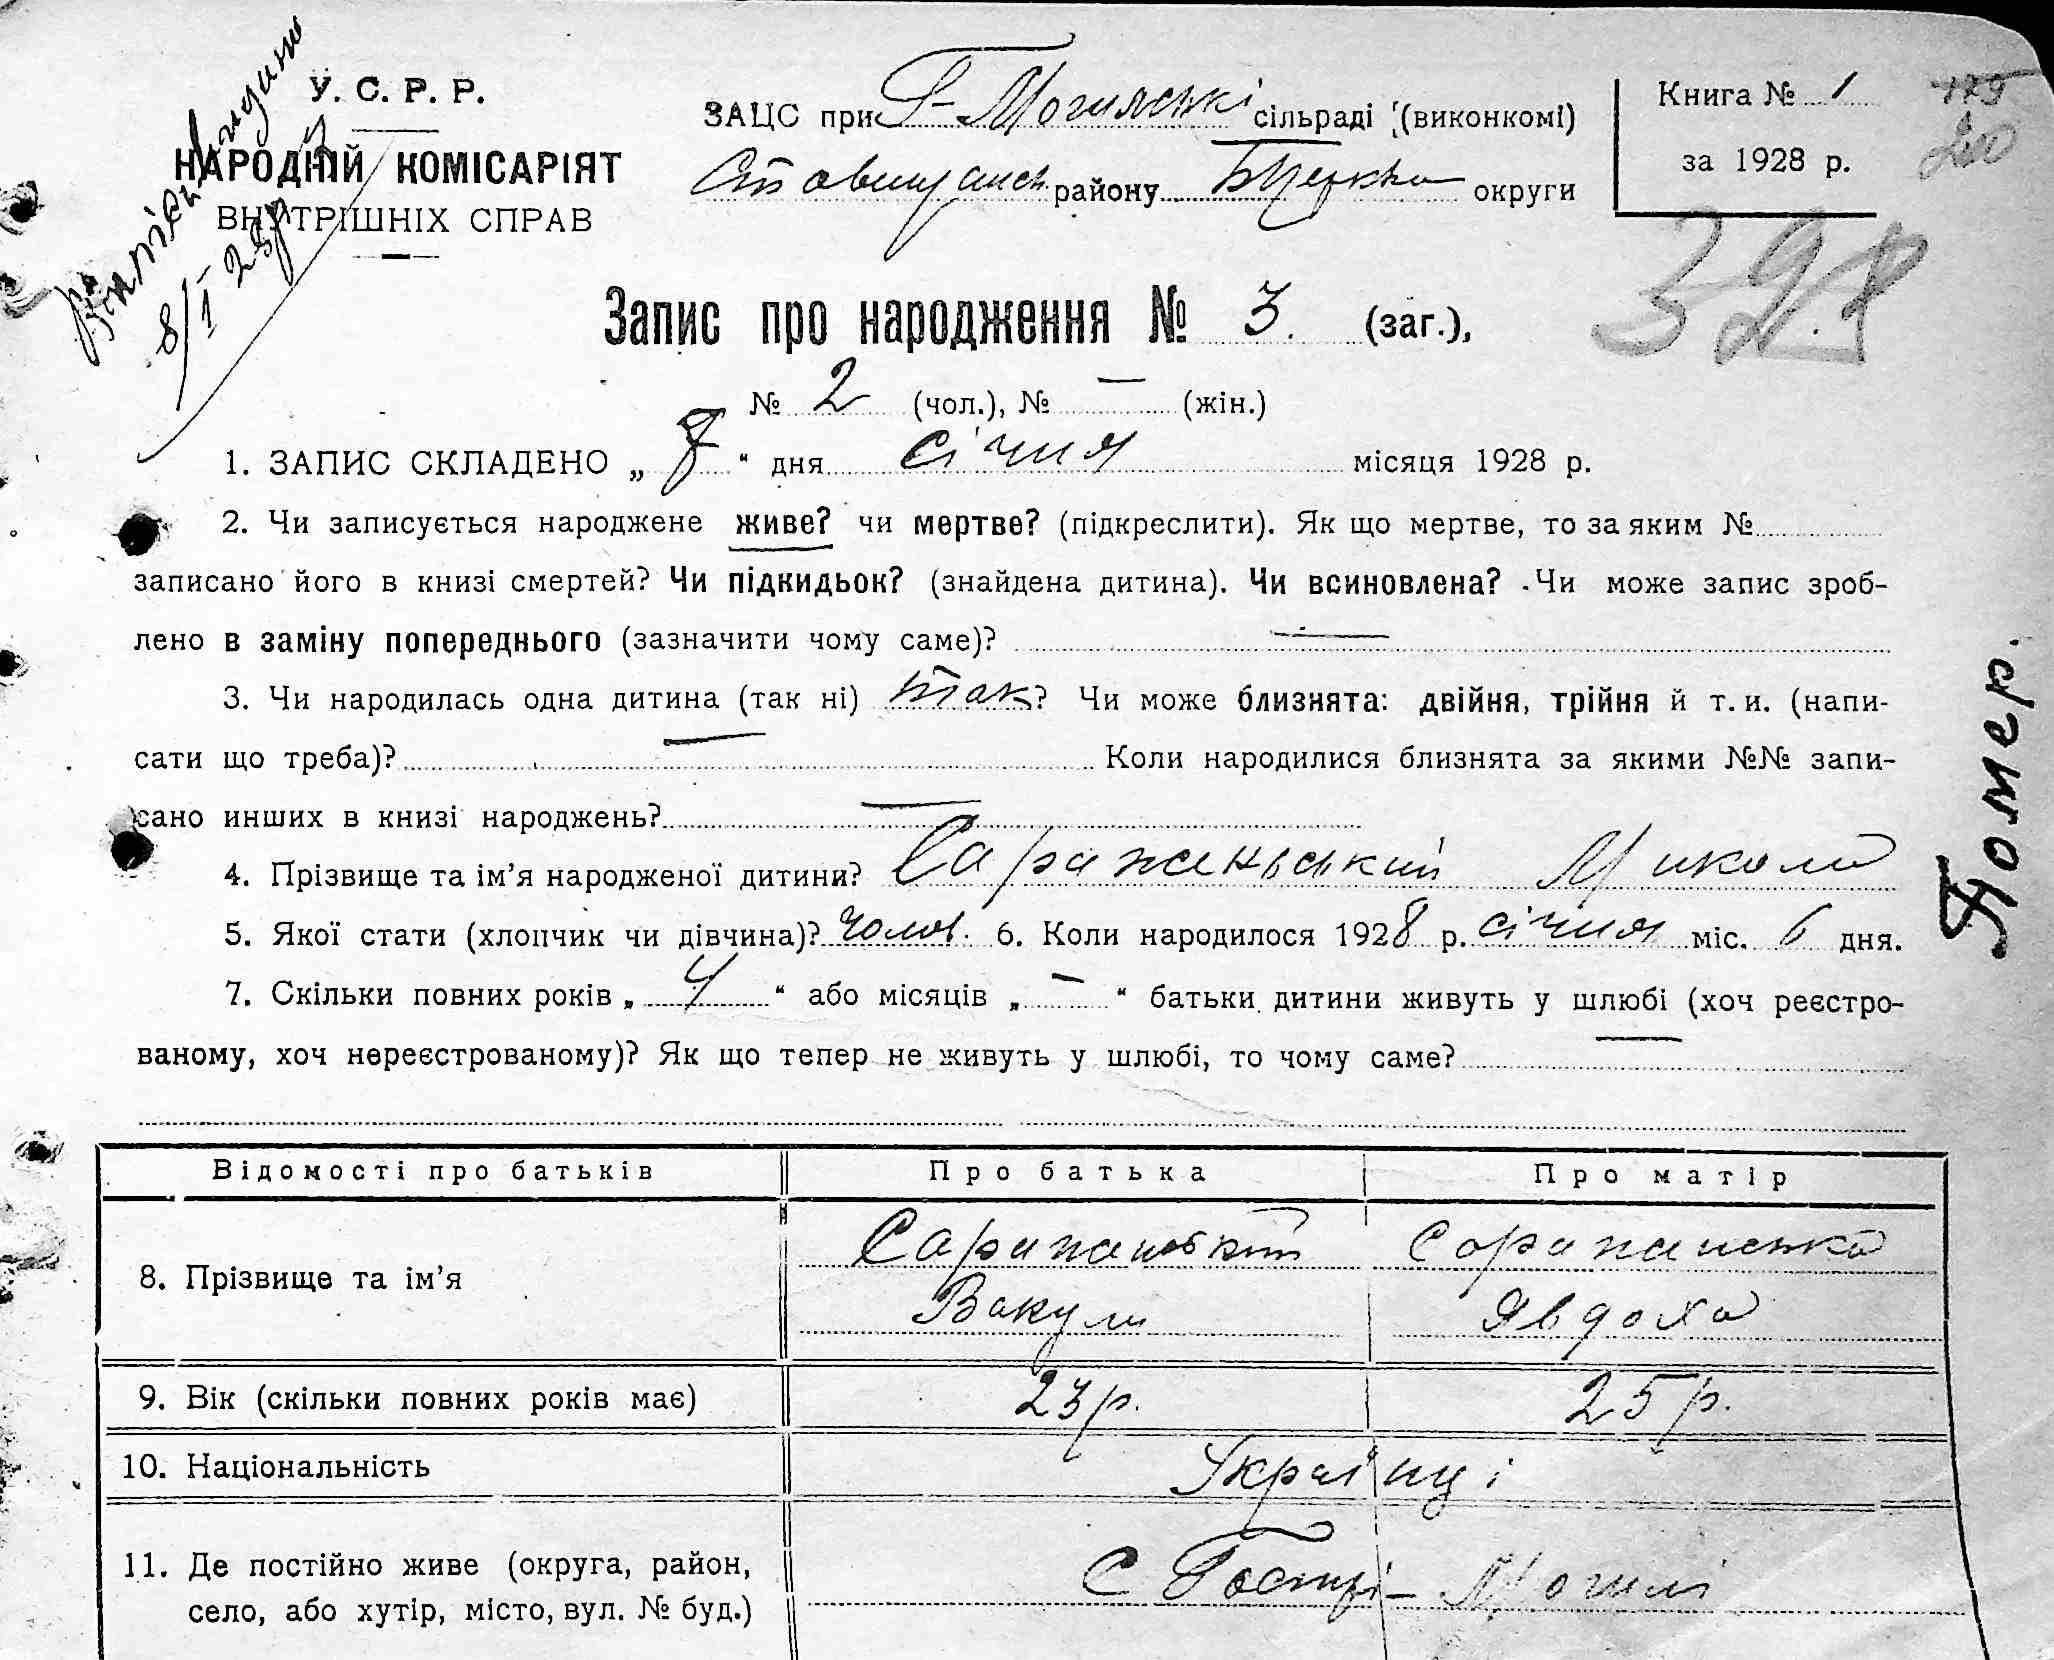 У. С. Р. Р.
НАРОДНІЙ КОМІСАРІЯТ
ВНУТРІШНІХ СПРАВ
8/I 28р
ЗАЦС при Г-Могилській сільраді (виконкомі)
Ставищанськ. району Б Церкви округи
Книга № 1
за 1928 р.
179
200
398
Запис про народження № 3. (заг.),
№ 2 (чол.), № — (жін.)
1. ЗАПИС СКЛАДЕНО „ 7 “ дня січня місяця 1928 р.
2. Чи записується народжене живе? чи мертве? (підкреслити). Як що мертве, то за яким №
записано його в книзі смертей? Чи підкидьок? (знайдена дитина). Чи всиновлена? Чи може запис зроб-
лено в заміну попереднього (зазначити чому саме)? —
3. Чи народилась одна дитина (так ні) так? Чи може близнята: двійня, трійня й т. и. (напи-
сати що треба)? — Коли народилися близнята за якими №№ запи-
сано инших в книзі народжень? —
4. Прізвище та ім’я народженої дитини? Сараженьський Микола
5. Якої стати (хлопчик чи дівчина)? чолов. 6. Коли народилося 1928 р. січня міс. 6 дня.
7. Скільки повних років „ 4 “ або місяців „ — “ батьки дитини живуть у шлюбі (хоч реєстро-
ваному, хоч нереєстрованому)? Як що тепер не живуть у шлюбі, то чому саме? —
Помер.
Відомості про батьків Про батька Про матір
8. Прізвище та ім’я
Вакула Явдоха
9. Вік (скільки повних років має) 23р. 25р.
10. Національність Українці
11. Де постійно живе (округа, район,
село, або хутір, місто, вул. № буд.)
С Гострі-Могилі